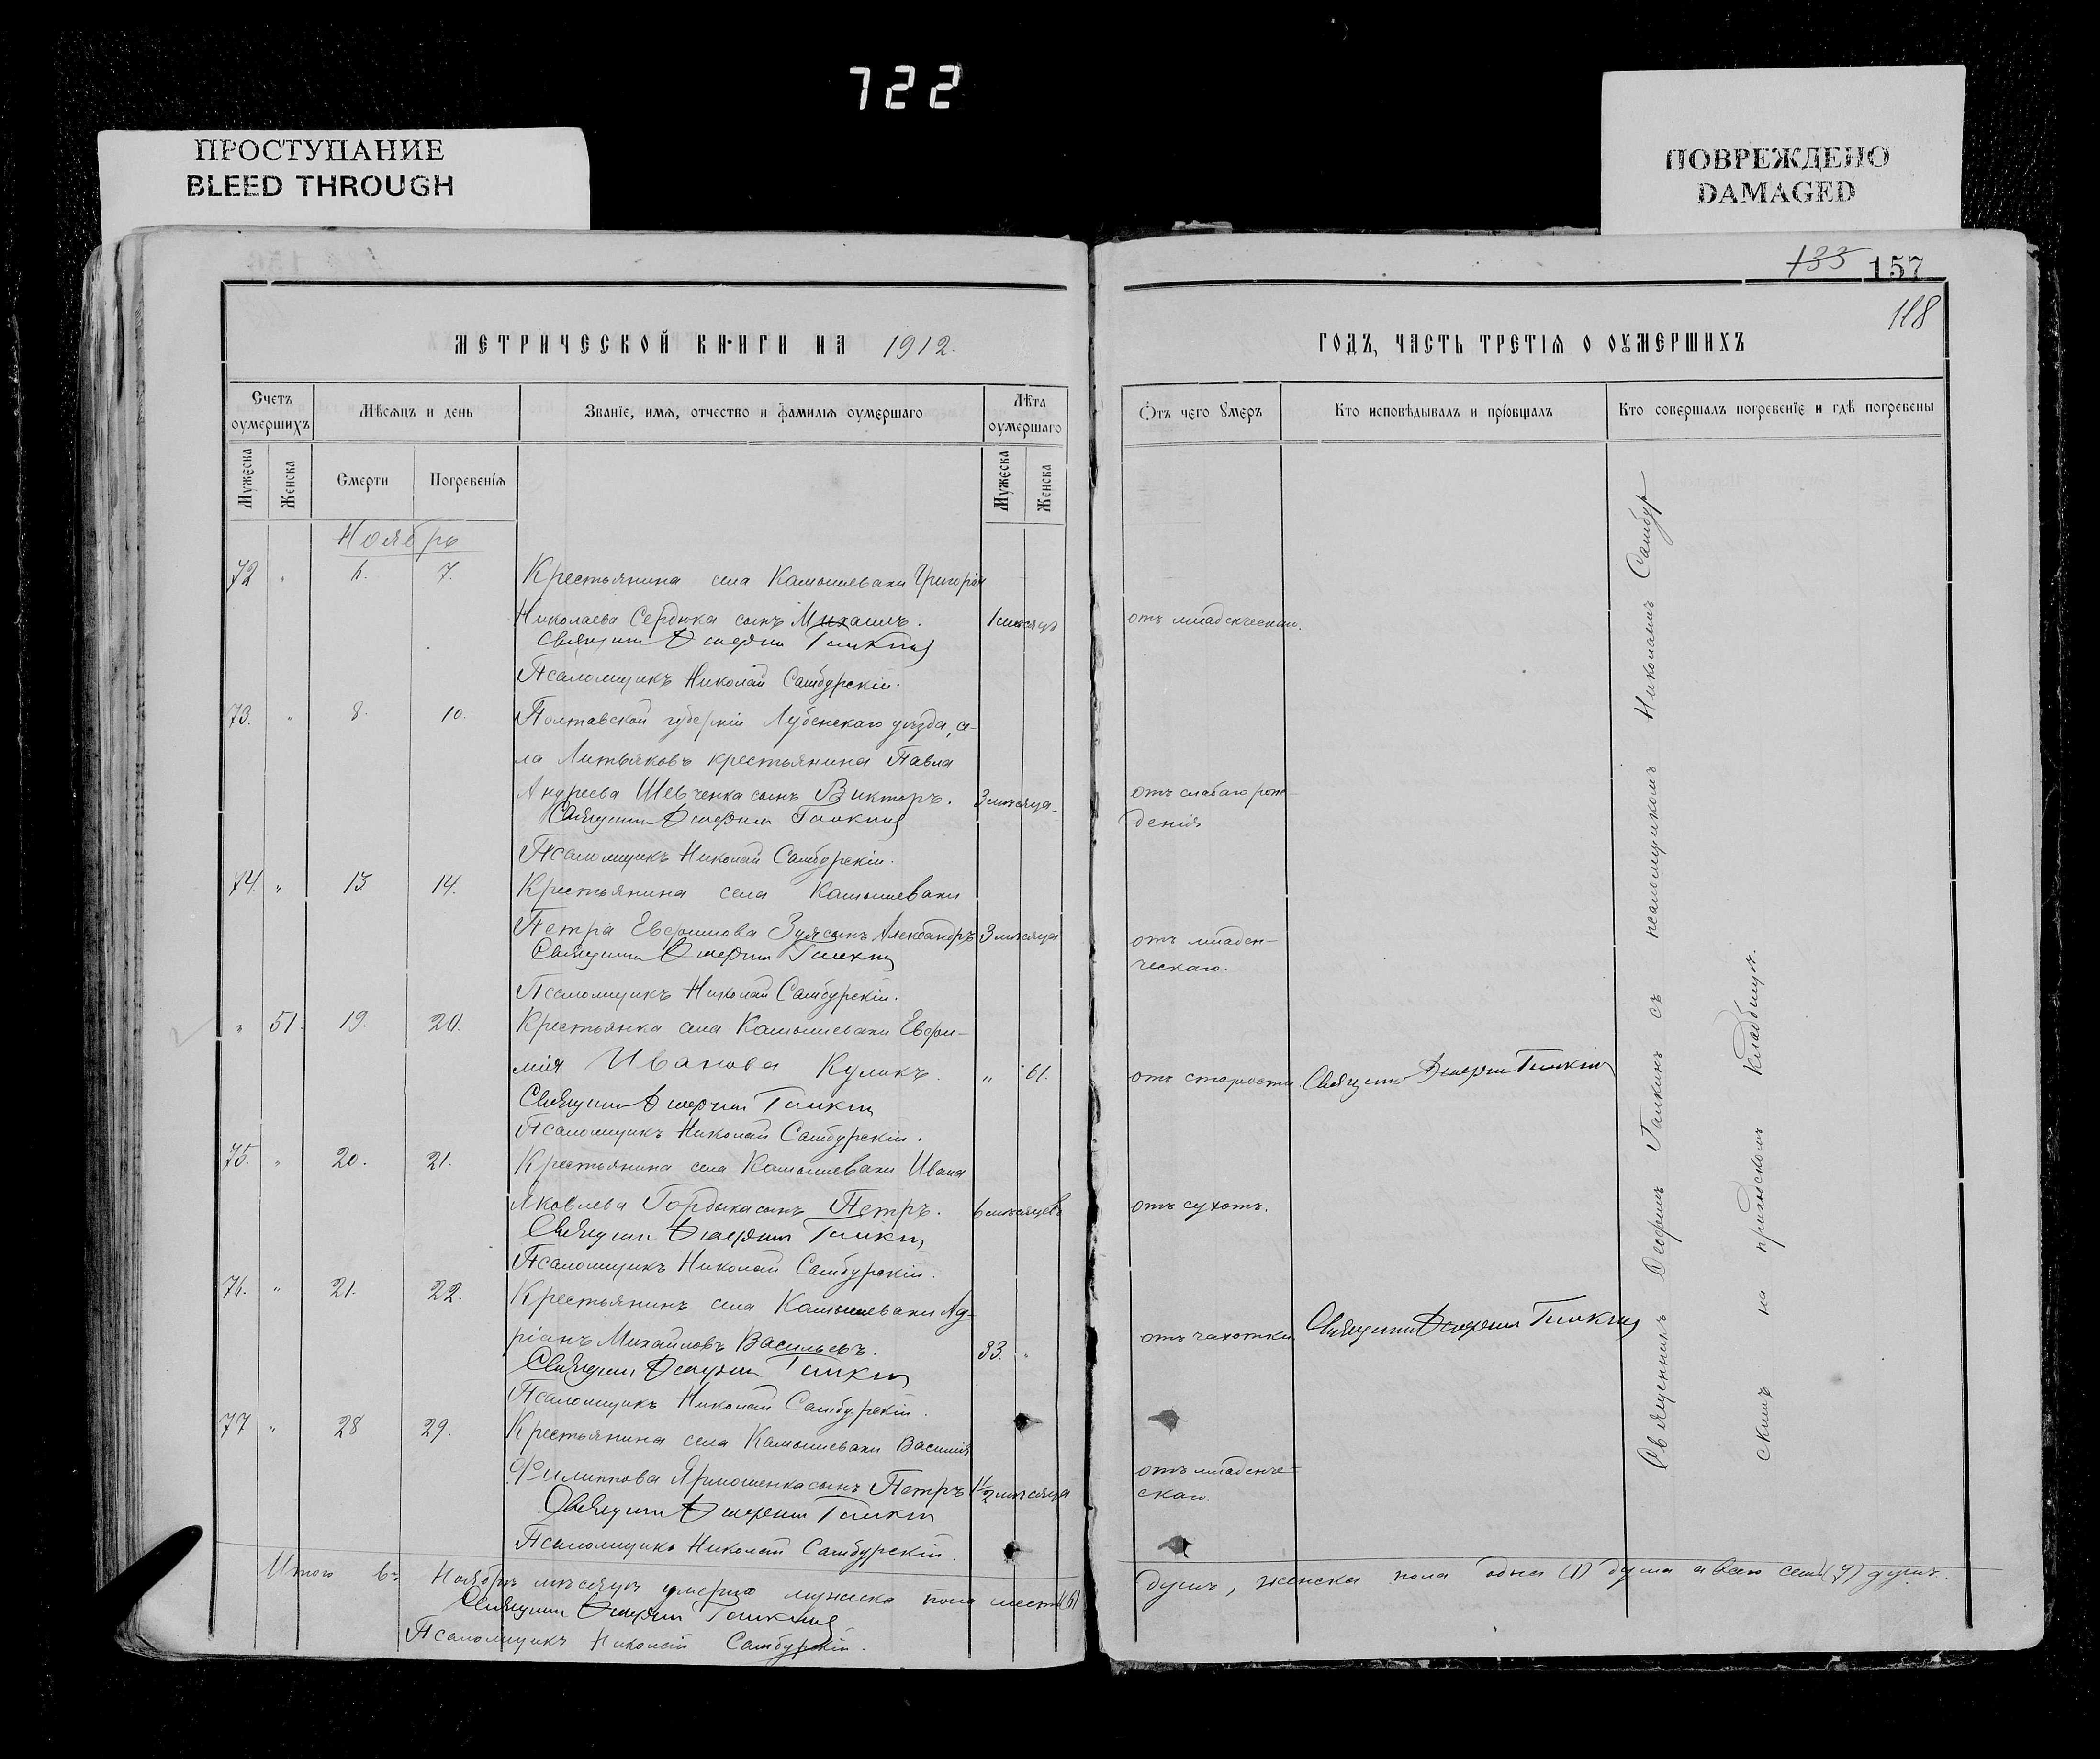 722
ПРОСТУПАНИЕ
BLEED THROUGH
ПОВРЕЖДЕНО
DAMAGED
133 157
118
МЕТРИЧЕСКОЙ КНИГИ НА 1912.
ГОДЪ, ЧАСТЬ ТРЕТІЯ О ОУМЕРШИХЪ
Счетъ оумершихъ
Мѣсяцъ и день
Званіе, имя, отчество и фамилія оумершаго
Лѣта оумершаго
Отъ чего умеръ
Кто исповѣдывалъ и пріобщалъ
Кто совершалъ погребеніе и гдѣ погребены
Мужеска
Женска
Смерти
Погребенія
Мужеска
Женска
Ноябрь
72 " 6. 7. Крестьянина села Камышевахи Григорія
Николаева Сердюка сынъ Михаилъ. 1 мѣсяцъ отъ младенческаго.
Священникъ Галкинъ
Псаломщикъ Николай Самбурскій.
73. " 8. 10. Полтавской губерніи Лубенскаго уѣзда, се-
ла Литвяковъ крестьянина Павла
Андреева Шевченка сынъ Викторъ. 3 мѣсяца. отъ слабаго рож-
дения
Священникъ Галкинъ
Псаломщикъ Николай Самбурскій.
74. " 13 14. Крестьянина села Камышевахи
Петра Евфимова Зуя сынъ Александръ 3 мѣсяца отъ младен-
ческаго.
Священникъ Галкинъ
Псаломщикъ Николай Самбурскій.
" 51. 19. 20. Крестьянка села Камышевахи Евфи-
мія Иванова Куликъ. " 61. отъ старости. Священникъ Галкинъ
Священникъ Галкинъ
Псаломщикъ Николай Самбурскій.
75. " 20. 21. Крестьянина села Камышевахи Ивана
Яковлева Гордыка сынъ Петръ. 6 мѣсяцевъ отъ сухотъ.
Священникъ Галкинъ
Псаломщикъ Николай Самбурскій.
76. " 21. 22. Крестьянинъ села Камышевахи Ад-
ріанъ Михаиловъ Васильевъ. 33. " отъ чахотки Священникъ Галкинъ
Священникъ Галкинъ
Псаломщикъ Николай Самбурскій.
77 " 28 29. Крестьянина села Камышевахи Василія
Филиппова Ярмошенка сынъ Петръ 1½ мѣсяца отъ младенче-
скаго.
Священникъ Галкинъ
Псаломщикъ Николай Самбурскій.
Священникъ Галкинъ съ псаломщикомъ Николаемъ Самбур
скимъ на приходскомъ кладбищѣ.
Итого въ Ноябрѣ мѣсяцѣ умерло мужеска пола шесть (6) душъ, женска пола одна (1) душа а всего семь (7) душъ.
Священникъ Галкинъ
Псаломщикъ Николай Самбурскій.